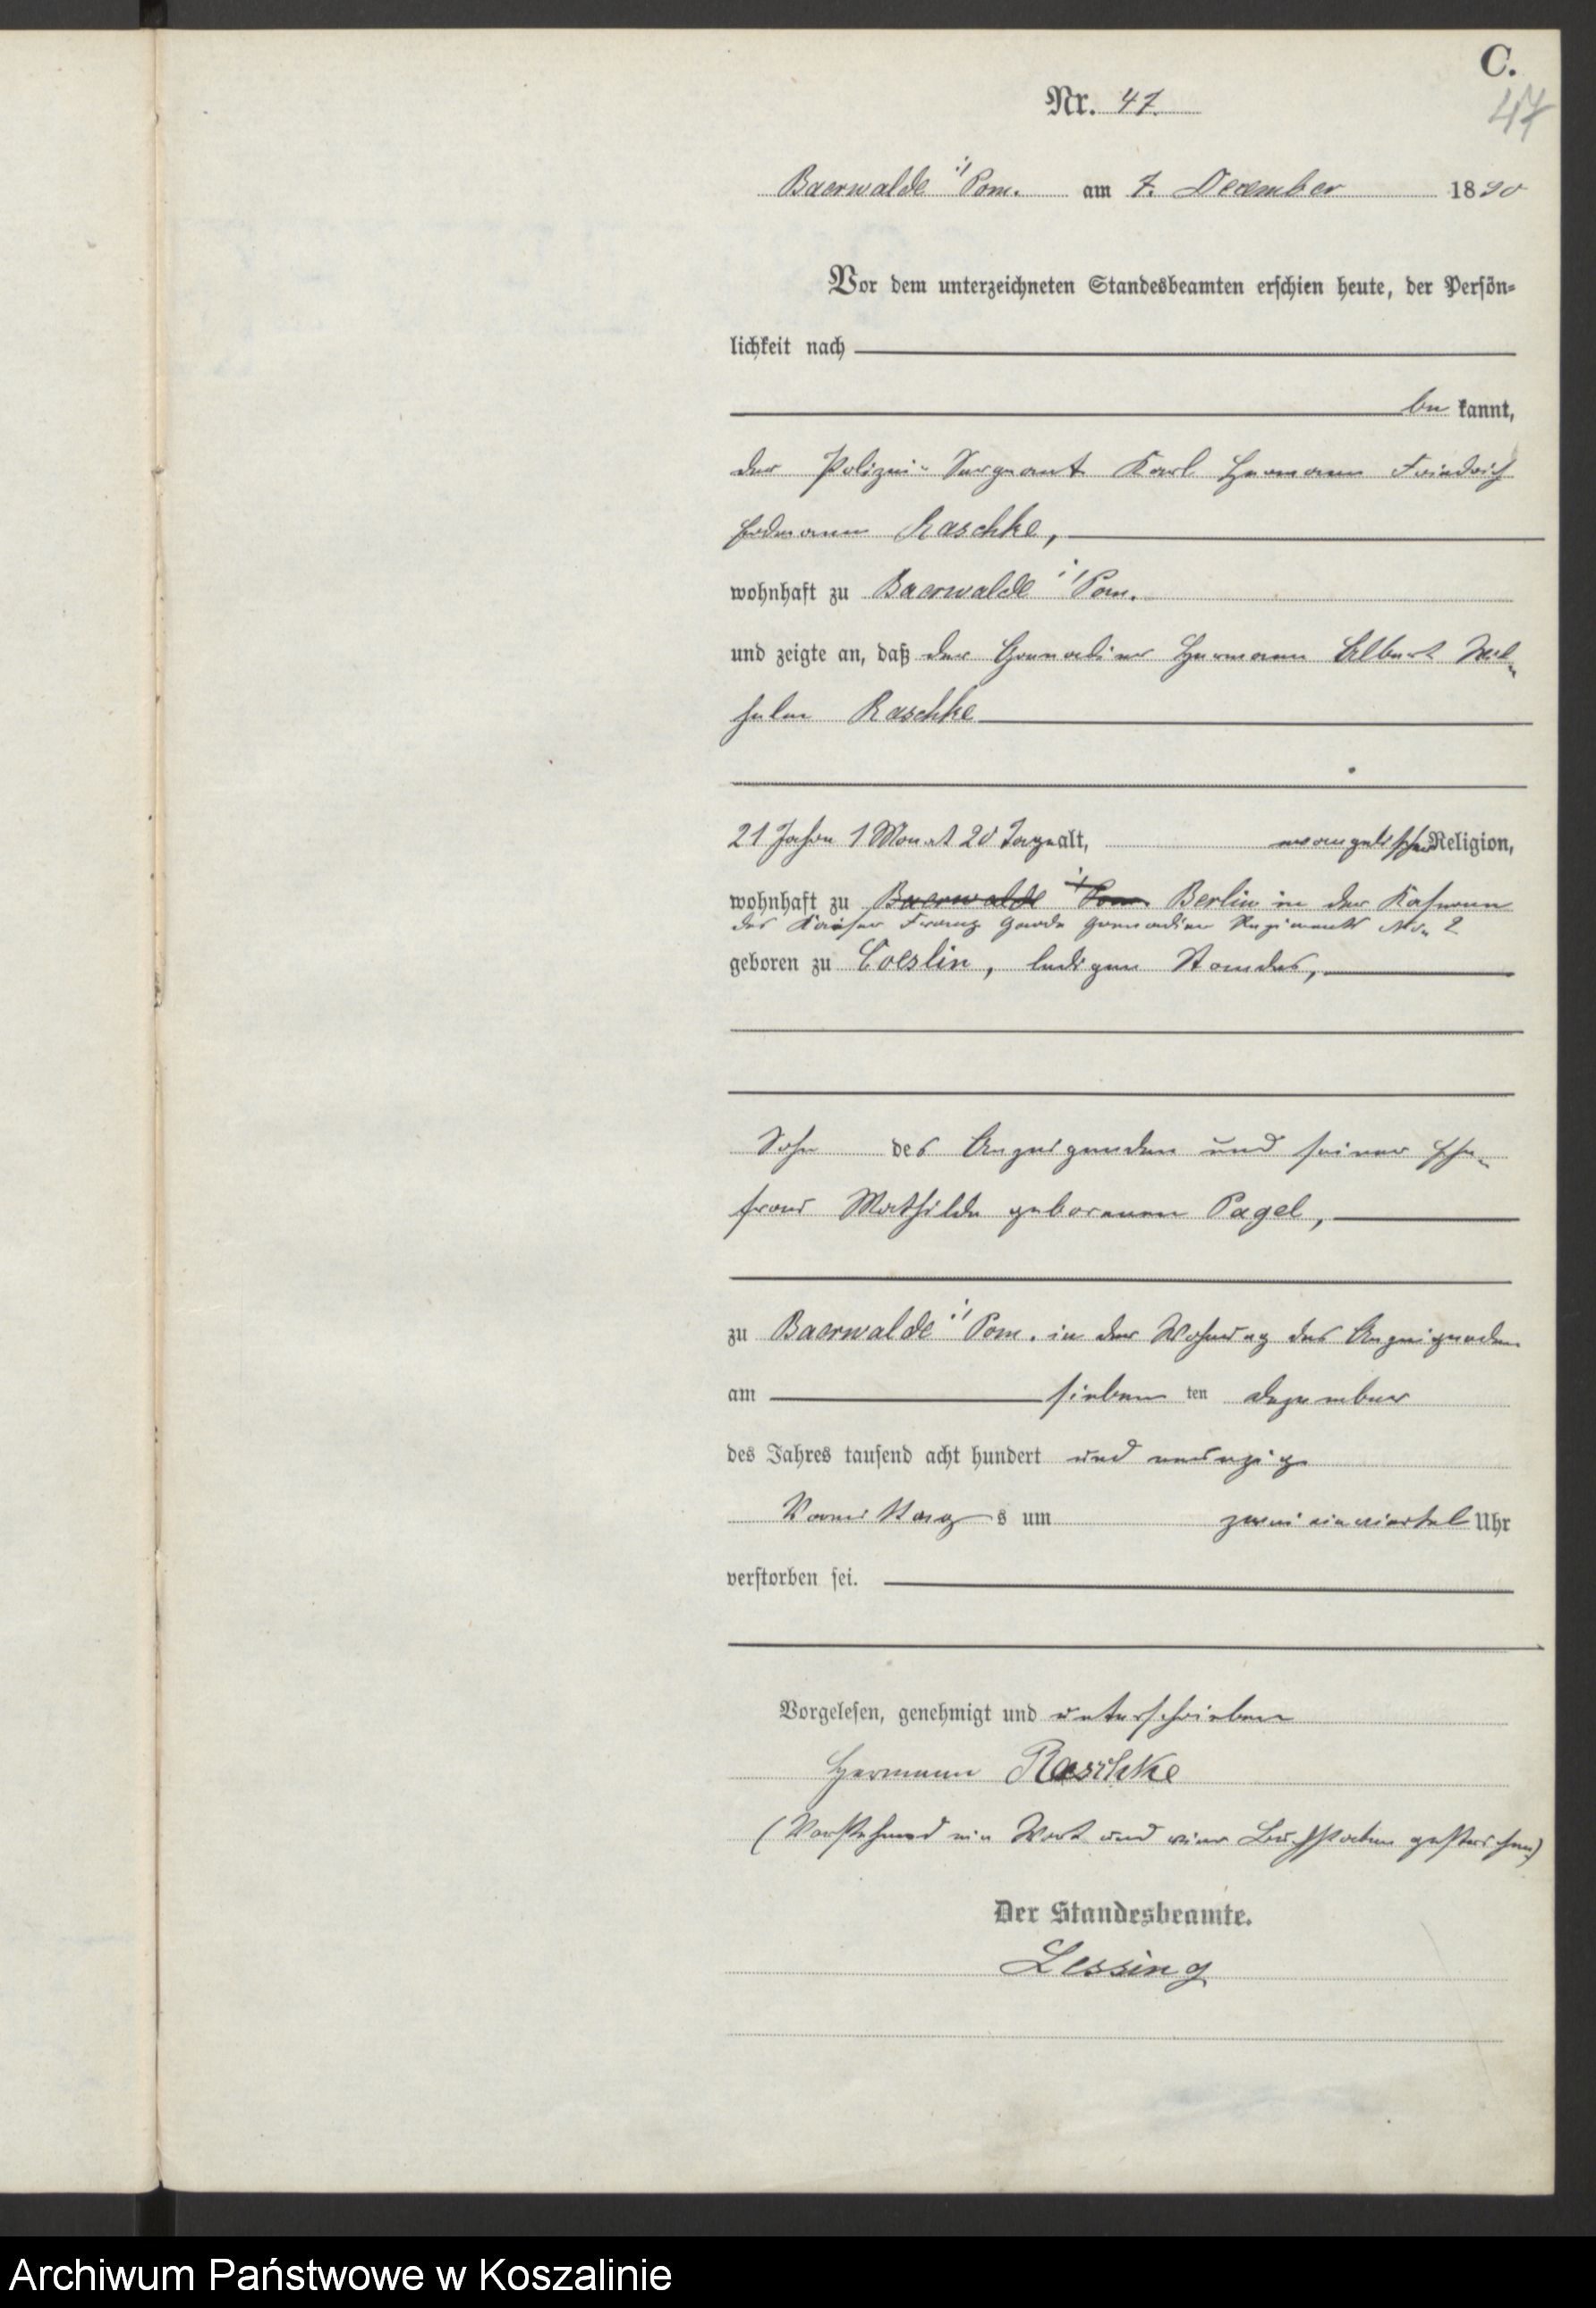 C.
47
Nr. 47.
Baerwalde i/ Pom. am 7. December 1890
Vor dem unterzeichneten Standesbeamten erschien heute, der Persön-
lichkeit nach
be kannt,
der Polizei-Sergeant Karl Hermann Friedrich
Erdmann Raschke,
wohnhaft zu Baerwalde i/ Pom.
und zeigte an, daß der Grenadier Hermann Albert Wil-
helm Raschke
21 Jahre 1 Monat 20 Tage alt, evangelischer Religion,
wohnhaft zu Baerwalde i/ Pom. Berlin in der Kaserne
des Kaiser Franz Garde Grenadier Regiments No. 2
geboren zu Coeslin, ledigen Standes,
Sohn des Anzeigenden und seiner Ehe-
frau Mathilde geborenen Pagel,
zu Baerwalde i/ Pom. in der Wohnung des Anzeigenden
am sieben ten Dezember
des Jahres tausend acht hundert und neunzig
Vormittag s um zwei einviertel Uhr
verstorben sei.
Vorgelesen, genehmigt und unterschrieben
Hermann Raschke
(Vorstehend ein Wort und vier Buchstaben gestrichen)
Der Standesbeamte.
Lessing
Archiwum Państwowe w Koszalinie